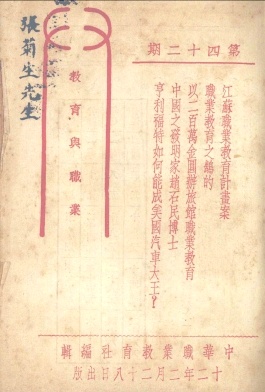 張菊生先生
教育與職業
期二十四第
江蘇職業教育計畫案
職業教育之鵠的
以二百萬金圓辦旅館職業教育
中國之發明家趙石民博士
亨利福特如何能成美國汽車大王？
輯編社育教業職華中
版出日八十二月二年二十